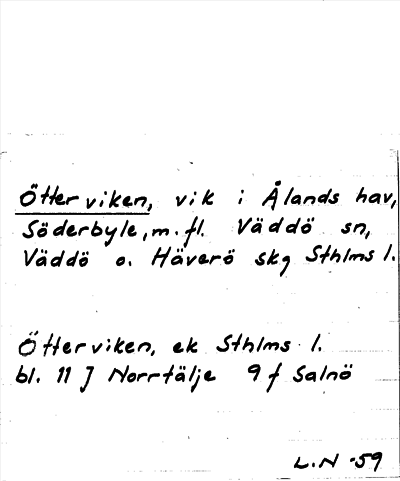 Ötterviken, vik i Ålands hav,
Söderbyle, m.fl. Väddö sn,
Väddö o. Häverö skg Sthlms l.
Ötterviken, ek Sthlms l.
bl. 11 J Norrtälje 9 f Salnö
L.N -59